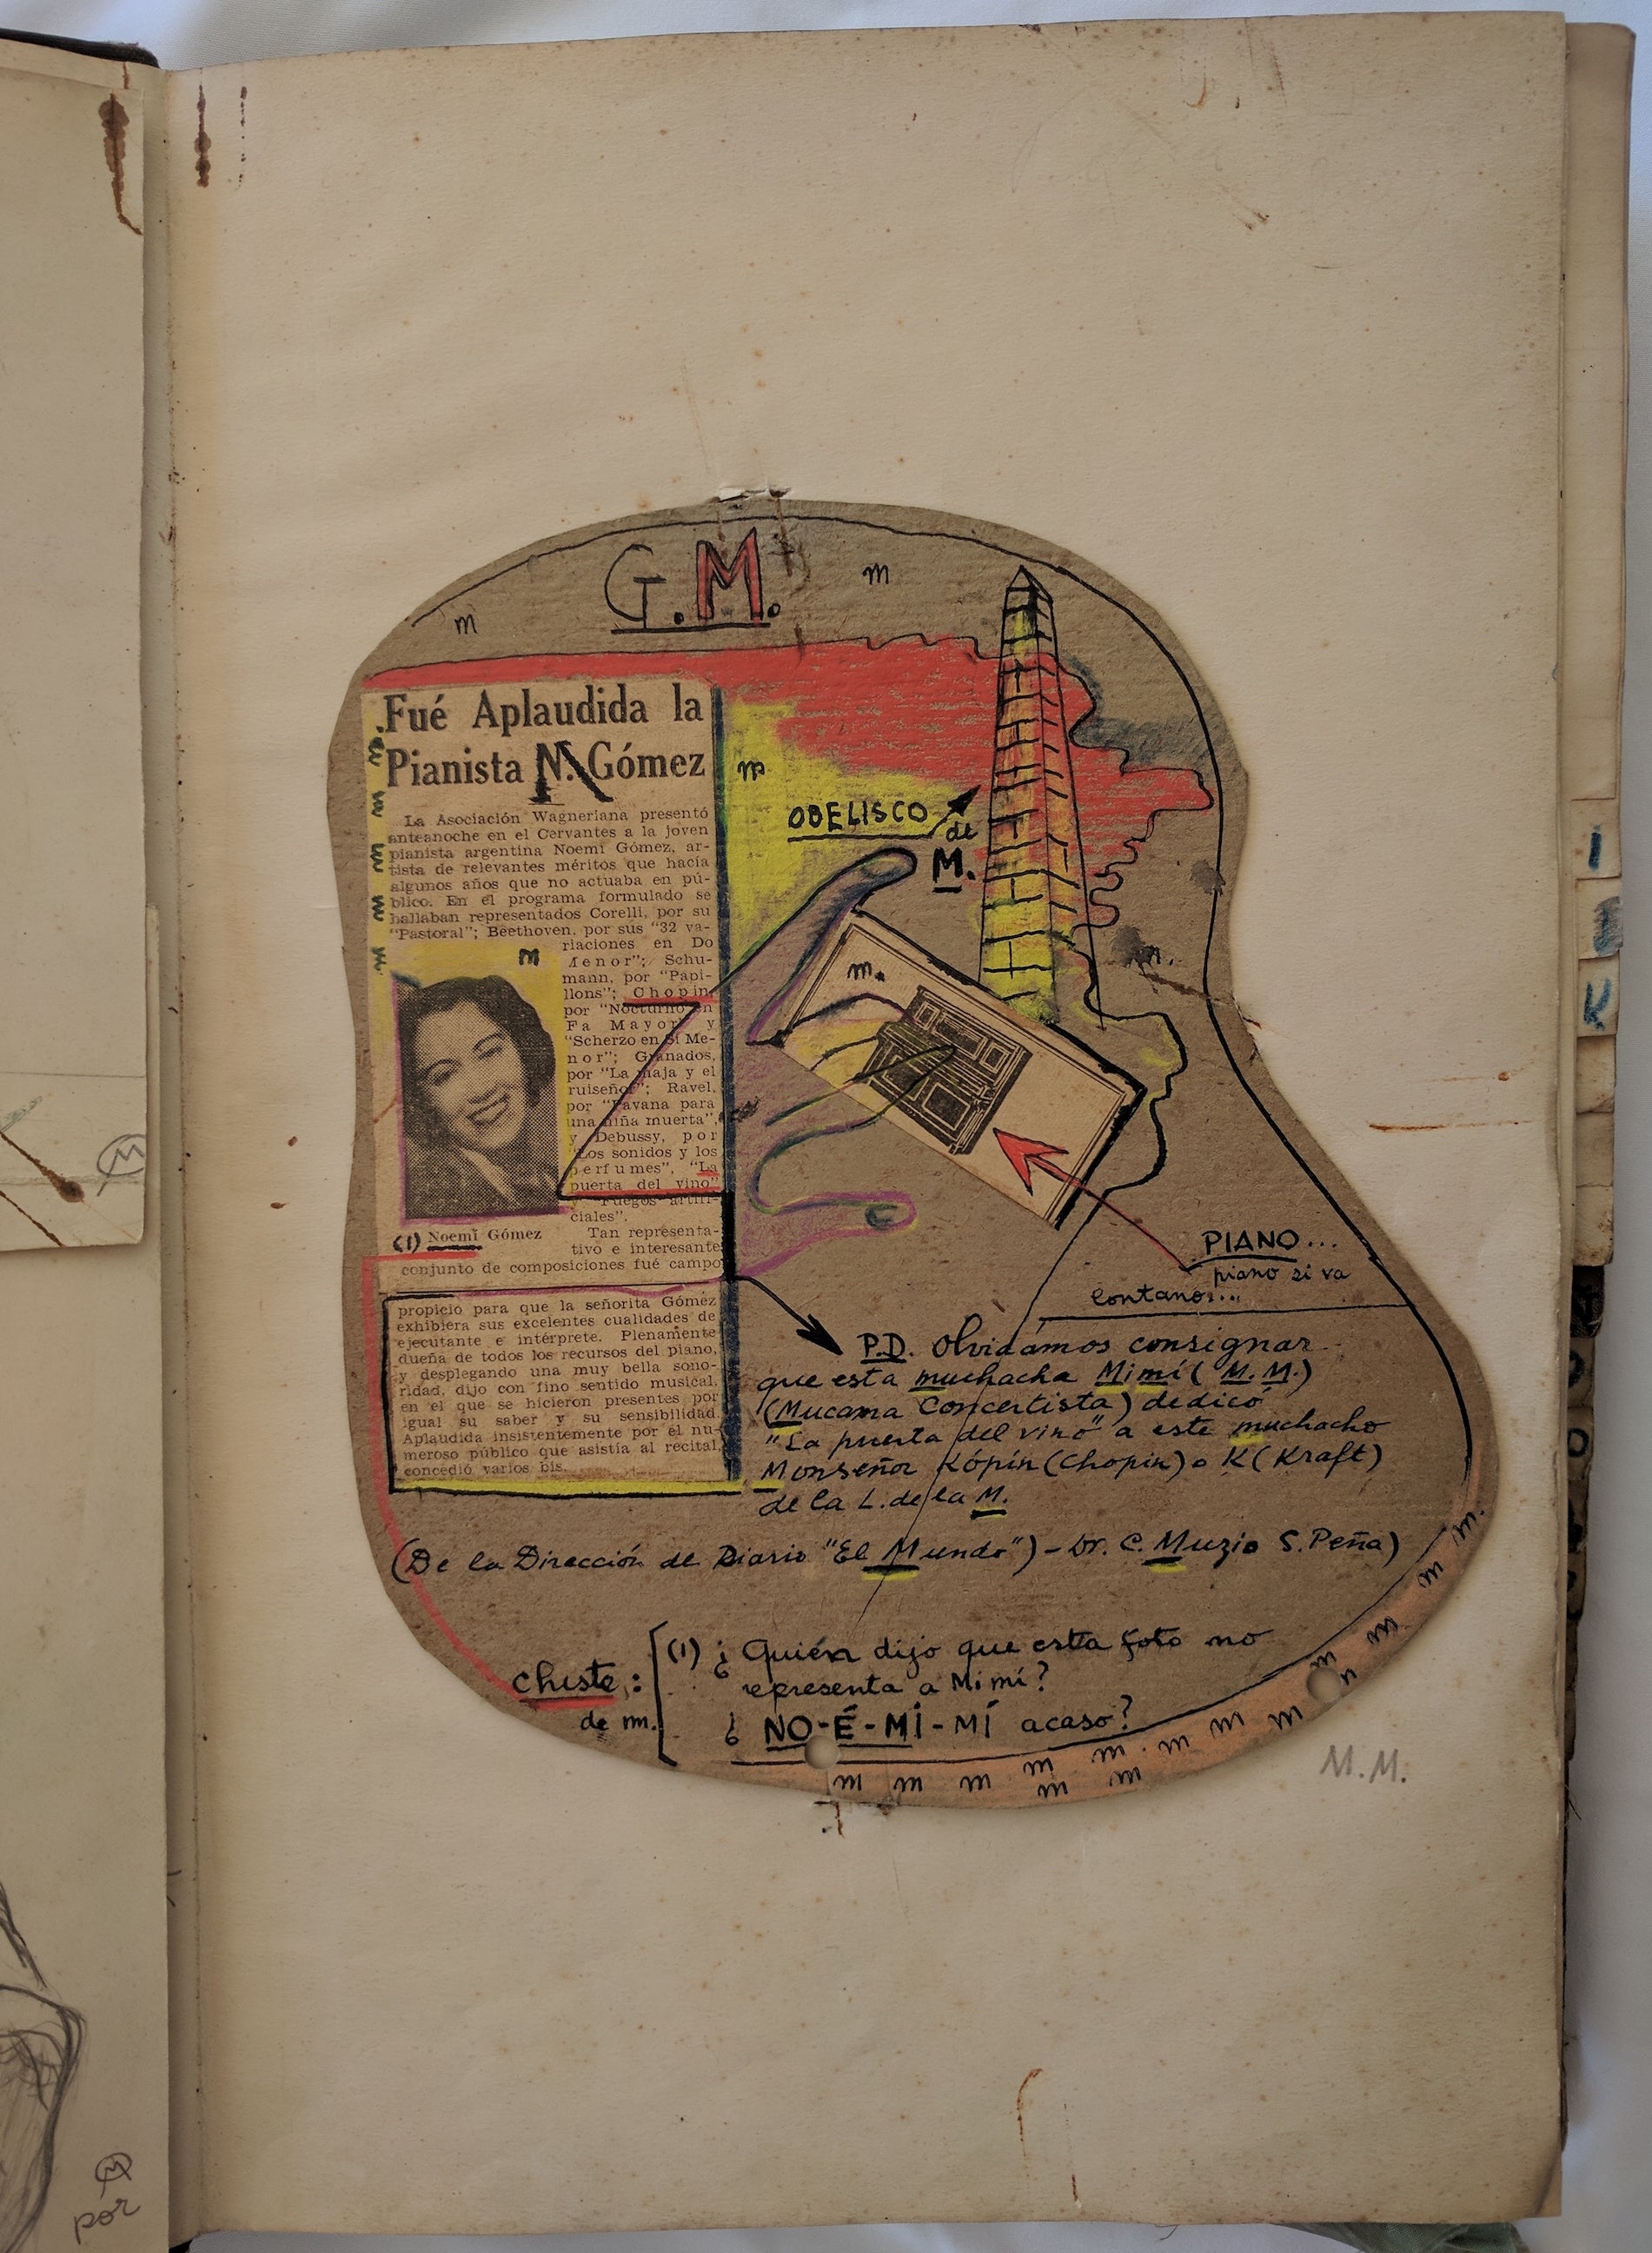 G.M.
m
m
Fué Aplaudida la
Pianista N. Gómez
La Asociación Wagneriana presentó
anteanoche en el Cervantes a la joven
pianista argentina Noemí Gómez, ar-
tista de relevantes méritos que hacía
algunos años que no actuaba en pú-
blico. En el programa formulado se
hallaban representados Corelli, por su
"Pastoral"; Beethoven, por sus "32 va-
riaciones en Do
Menor"; Schu-
mann, por "Papi-
llons"; Chopin
por "Nocturno en
Fa Mayor" y
"Scherzo en Si Me-
nor"; Granados,
por "La maja y el
ruiseñor"; Ravel,
por "Pavana para
una niña muerta",
y Debussy, por
"Los sonidos y los
perfumes", "La
puerta del vino"
y "Fuegos artifi-
ciales".
(1) Noemí Gómez
Tan representa-
tivo e interesante
conjunto de composiciones fué campo
propicio para que la señorita Gómez
exhibiera sus excelentes cualidades de
ejecutante e intérprete. Plenamente
dueña de todos los recursos del piano,
y desplegando una muy bella sono-
ridad, dijo con fino sentido musical,
en el que se hicieron presentes por
igual su saber y su sensibilidad.
Aplaudida insistentemente por el nu-
meroso público que asistía al recital,
concedió varios bis.
m m m m m
m
m
OBELISCO
de
M.
m.
m.
PIANO...
piano si va
lontano...
P.D. Olvidamos consignar
que esta muchacha Mimí (M.M.)
(Mucama Concertista) dedicó
"La puerta del vino" a este muchacho
Monseñor Kópin (Chopin) o K (Kraft)
de la L. de la M.
(De la Dirección de Diario "El Mundo") - Dr. C. Muzio S. Peña)
chiste:
de m.
(1) ¿Quién dijo que esta foto no
representa a Mimí?
¿NO-É-MÍ-MÍ acaso?
m m m m m m m m m m m m m m m m.
M.M.
M
M
por